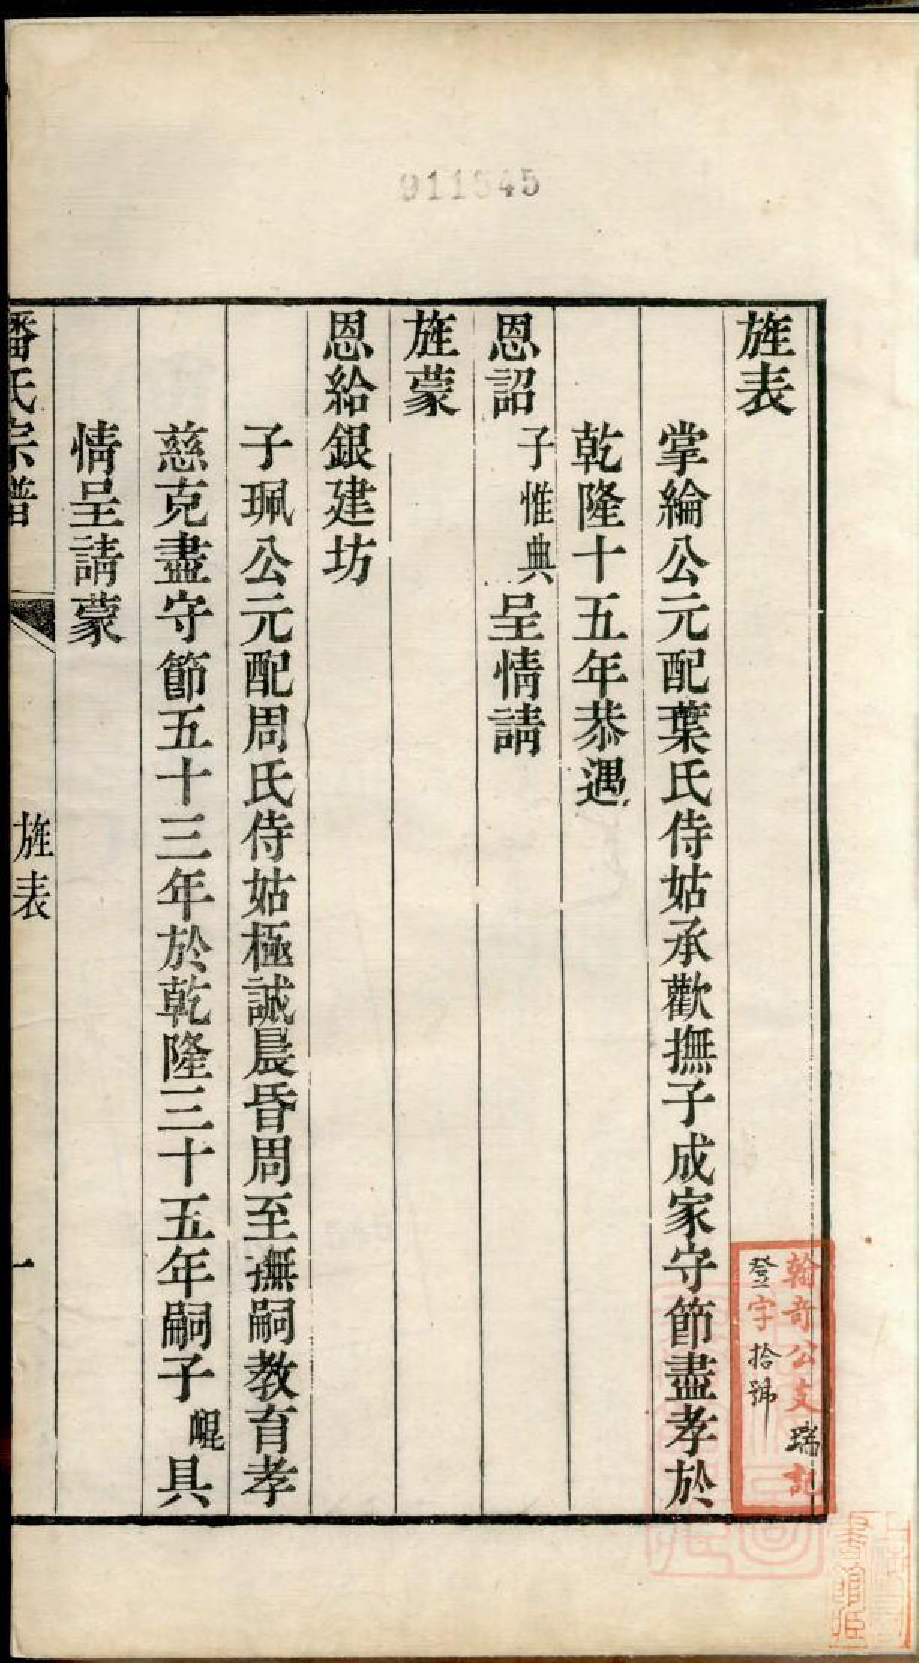 旌表
掌綸公元配葉氏侍姑承歡撫子成家守節盡孝於
乾隆十五年恭遇
恩詔子惟典呈情請
旌蒙
恩給銀建坊
子珮公元配周氏侍姑極誠晨昏周至撫嗣教育孝
慈克盡守節五十三年於乾隆三十五年嗣子崐具
情呈請蒙
潘氏宗譜
旌表
一
翰奇公支瑞記
登字拾號
911545